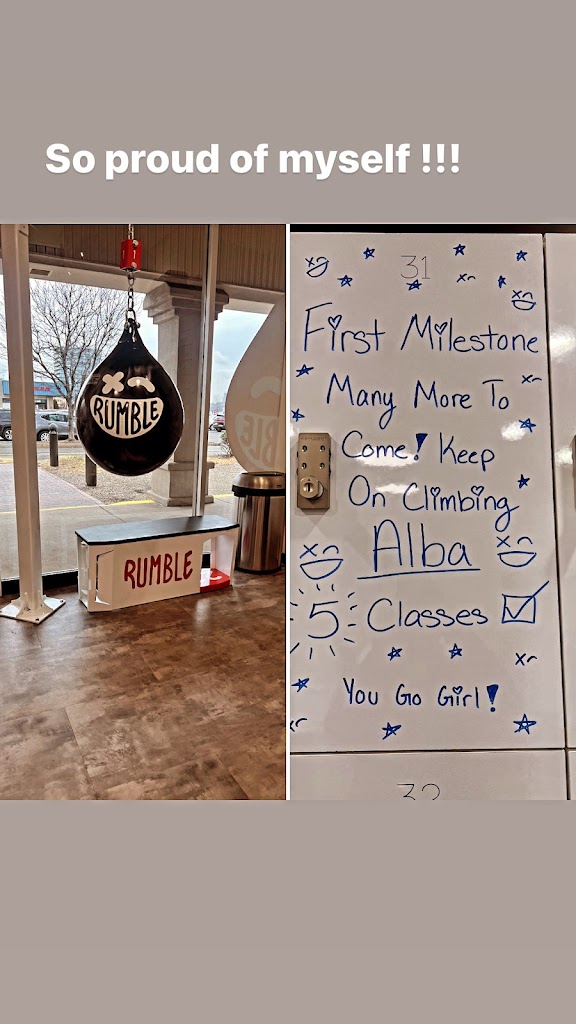 So proud of myself !!!
RUMBLE
RUMBLE
31
First Milestone
Many More To
Come! Keep
On Climbing
Alba
5 Classes
You Go Girl!
32